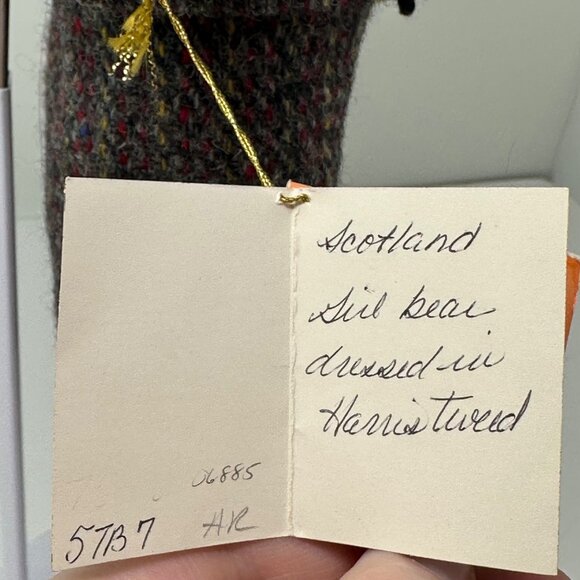 Scotland
Girl bear
dressed in
Harris tweed
06885
5TB7 HR